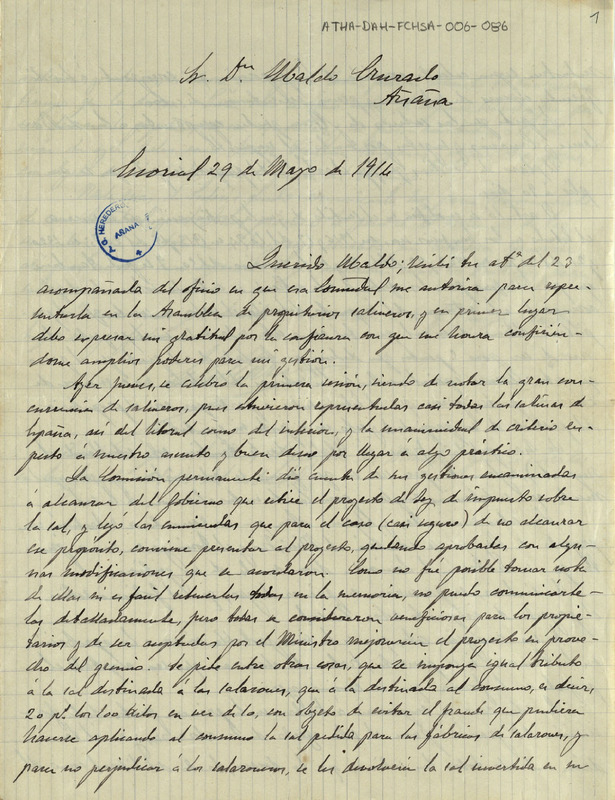 ATHA-DAH-FCHSA-006-086
1
Sr. Dn. Ubaldo Cruzado
Añana
Escorial 29 de Mayo de 1914
AÑANA
Querido Ubaldo; recibí tu atª del 23
acompañada del oficio en que esa Comunidad me autoriza para repre-
sentarla en la Asamblea de propietarios salineros, y en primer lugar
debo expresar mi gratitud por la confianza con que me honra confirién-
dome amplios poderes para mi gestión.
Ayer jueves, se celebró la primera sesión, siendo de notar la gran con-
currencia de salineros, pues estuvieron representadas casi todas las salinas de
España, así del litoral como del interior, y la unanimidad de criterio res-
pecto a nuestro asunto y buen deseo por llegar á algo práctico.
La Comisión permanente dió cuenta de sus gestiones encaminadas
á alcanzar del Gobierno que retire el proyecto de ley de impuesto sobre
la sal, y leyó las enmiendas que para el caso (casi seguro) de no alcanzar
ese propósito, conviene presentar al proyecto, quedando aprobadas con algu-
nas modificaciones que se acordaron. Como no fue posible tomar nota
de ellas ni es facil retenerlas todas en la memoria, no puedo comunicárte-
las detalladamente, pero todas se consideraron beneficiosas para los propie-
tarios y de ser aceptadas por el Ministro mejorarían el proyecto en prove-
cho del gremio. Se pide entre otras cosas, que se imponga igual tributo
á la sal destinada á las salazones, que á la destinada al consumo, es decir,
20 pts los 100 kilos en vez de 10, con objeto de evitar el fraude que pudiera
hacerse aplicando al consumo la sal pedida para las fábricas de salazones, y
para no perjudicar á los salazoneros, se les devolvería la sal invertida en su